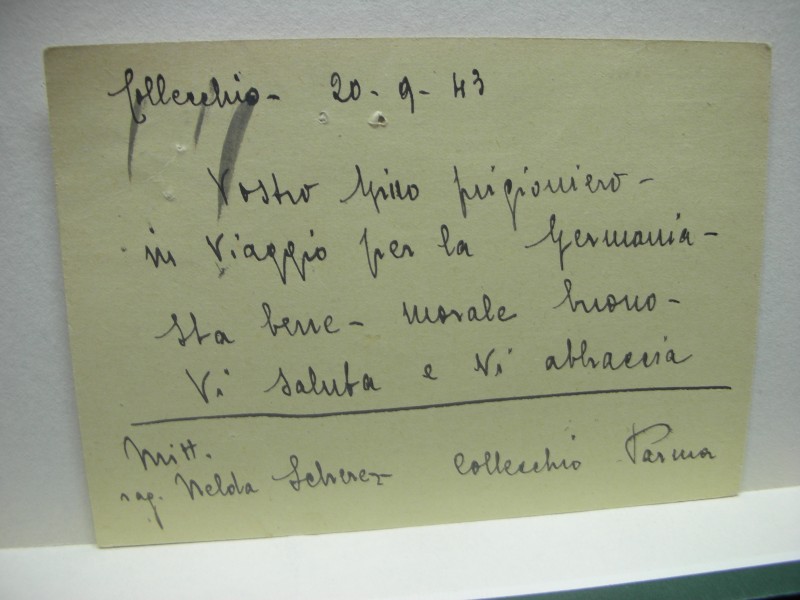 Collecchio - 20 - 9 - 43
Vostro prigioniero -
in viaggio per la Germania -
sta bene - morale buono -
Vi saluta e Vi abbraccia
Mitt.
rag. Nelda Collecchio Parma